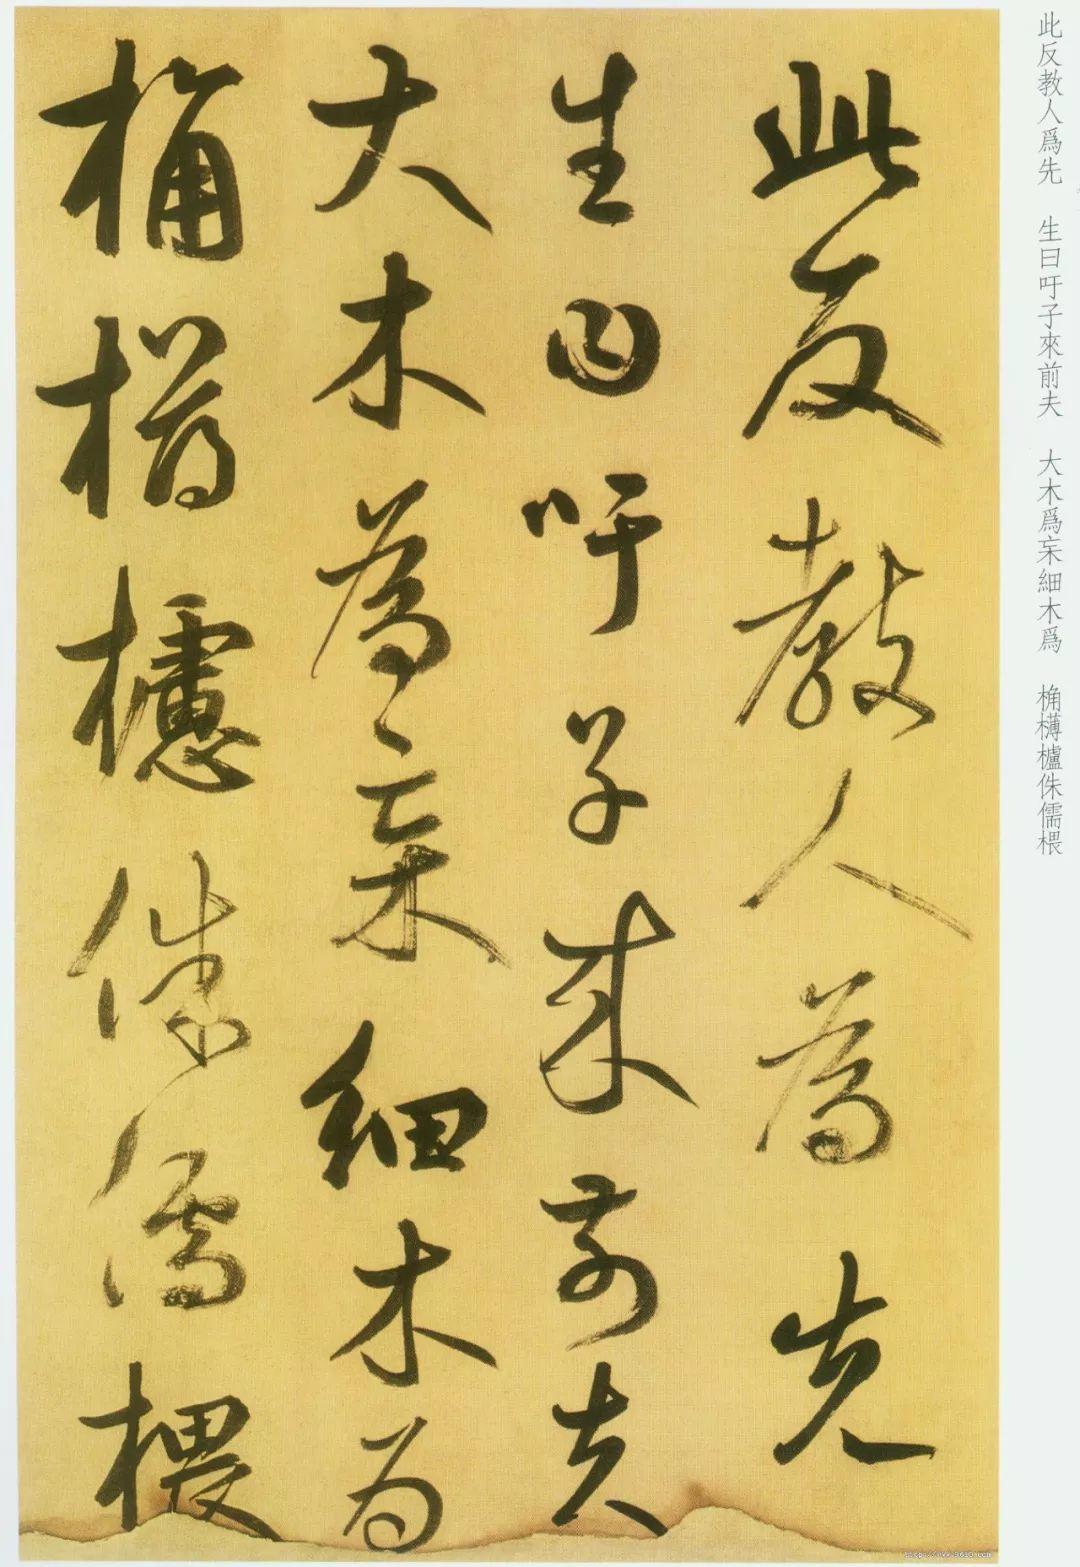 此反教人為先
生曰吁子來前夫
大木為杗細木為
桷欂櫨侏儒椳
此反教人爲先　生曰吁子來前夫　大木爲杗細木爲　桷欂櫨侏儒椳